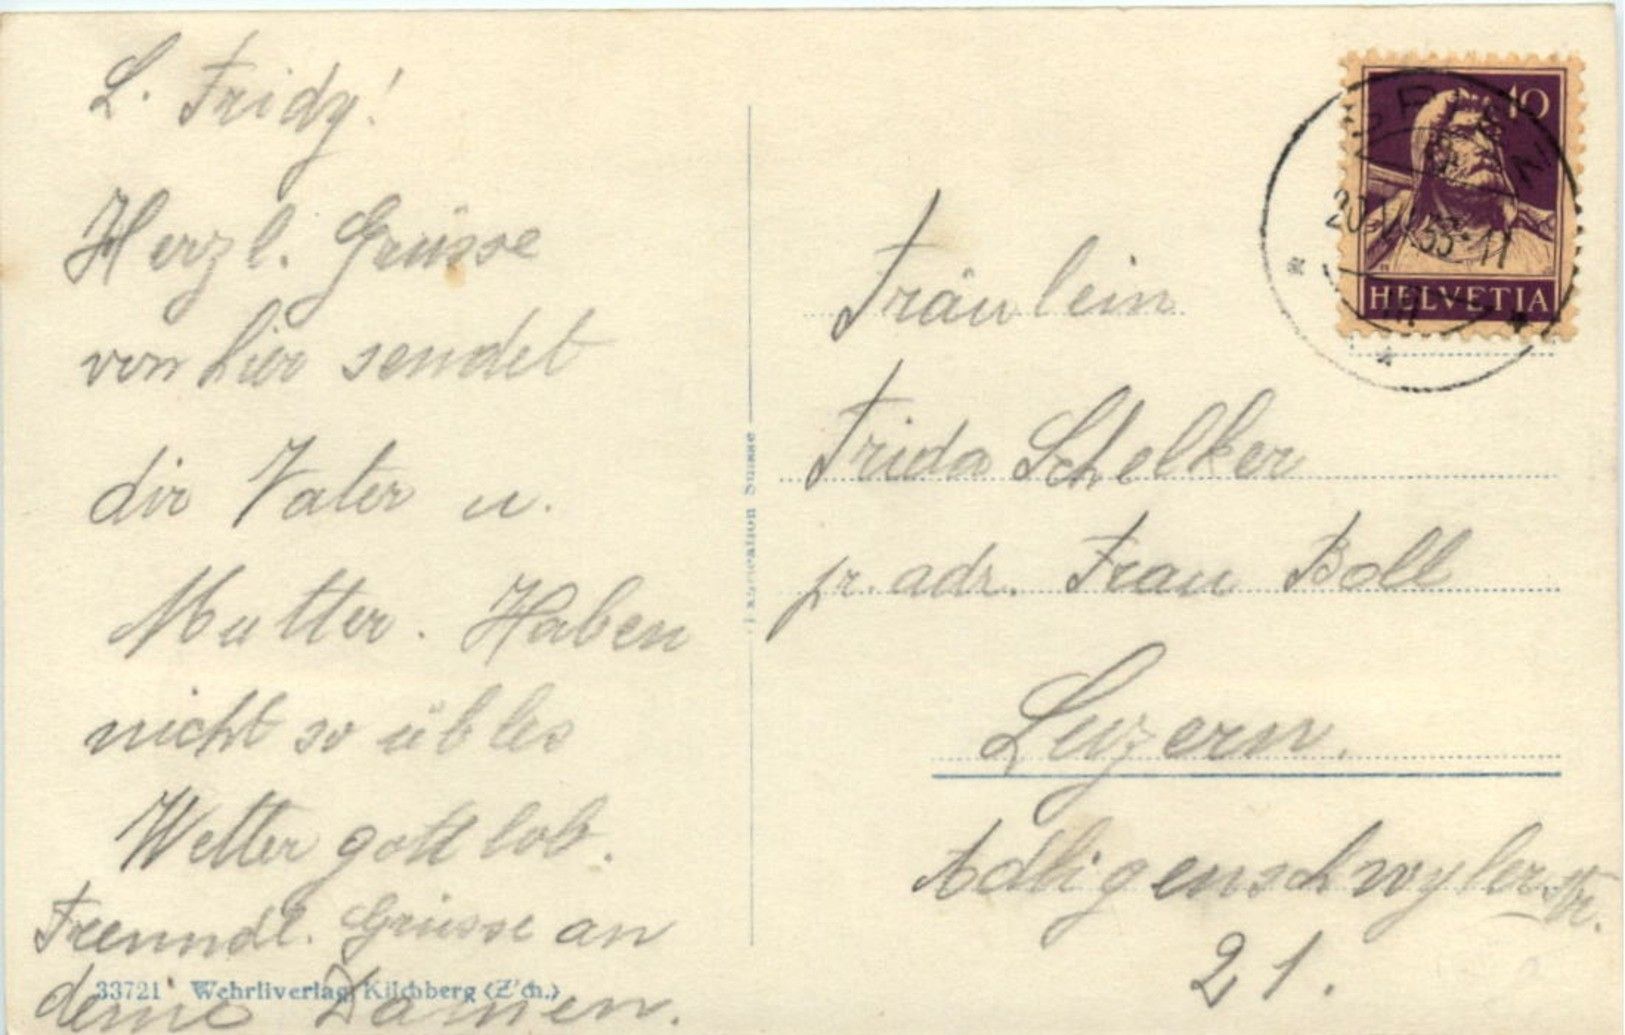 L. Fridy!
Herzl. Grüsse
von hier sendet
dir Vater u.
Mutter. Haben
nicht so übles
Wetter gottlob.
Freundl. Grüsse an
deine Damen.
33721 Wehrliverlag Kilchberg (Z'ch.)
Suisse
10
HELVETIA
Fräulein
Frida Schelker
pr. adr. Frau Boll
Luzern.
Adligenschwylerstr.
21.